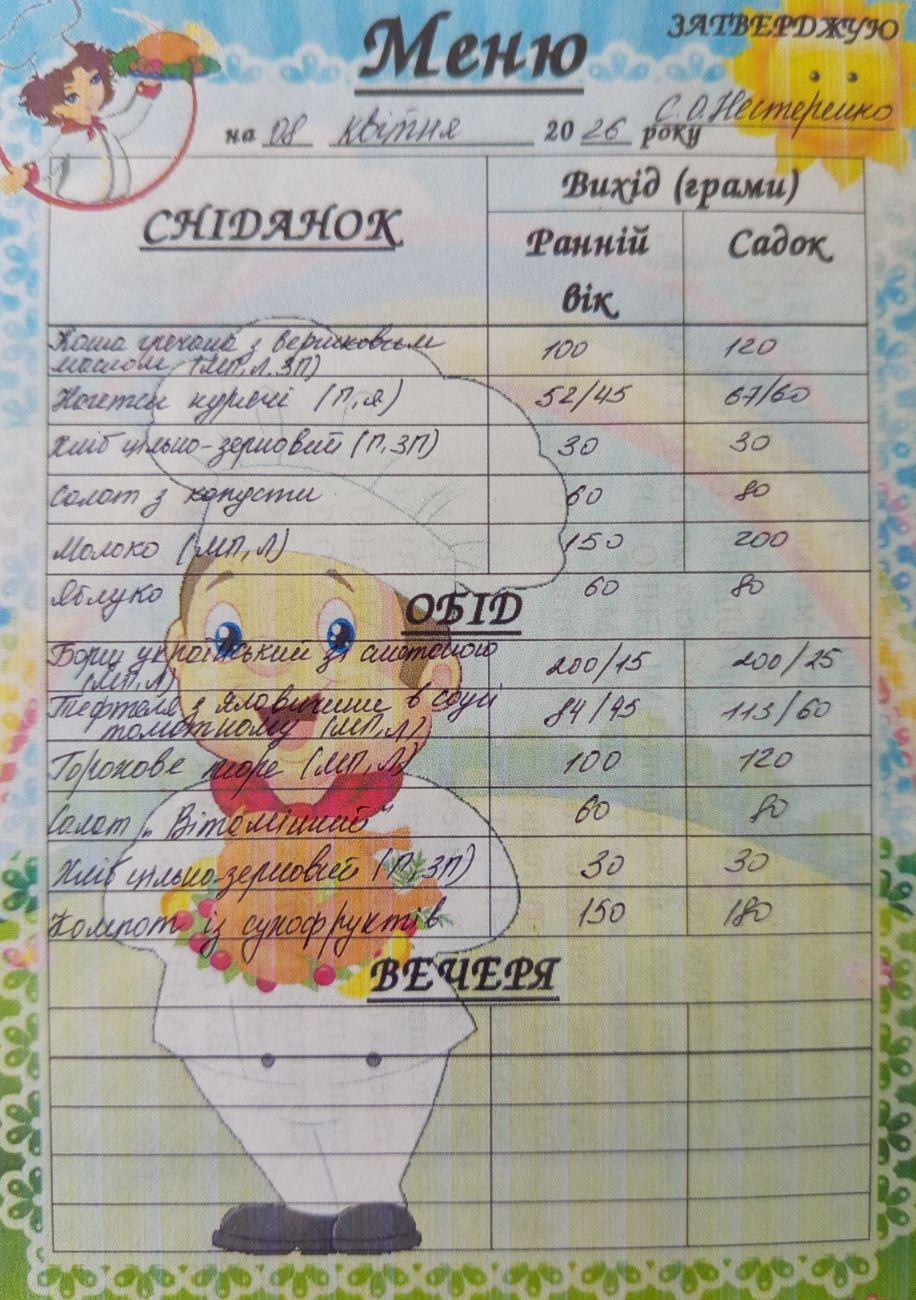 Меню
ЗАТВЕРДЖУЮ
С.О.Нестеренко
на 08 квітня 20 26 року
СНІДАНОК
Вихід (грами)
Ранній вік
Садок
Каша гречана з вершковим маслом (МП, Л, ЗП) 100 120
Нагетси курячі (П, я) 52/45 67/60
Хліб цільно-зерновий (П, ЗП) 30 30
Салат з капусти 60 80
Молоко (МП, Л) 150 200
Яблуко 60 80
ОБІД
Борщ український зі сметаною (МП, Л) 200/15 200/25
Тефтелі з яловичини в соусі томатному (МП, Л) 84/45 113/60
Горохове пюре (МП, Л) 100 120
Салат „Вітамінний" 60 80
Хліб цільно-зерновий (П, ЗП) 30 30
Компот із сухофруктів 150 180
ВЕЧЕРЯ